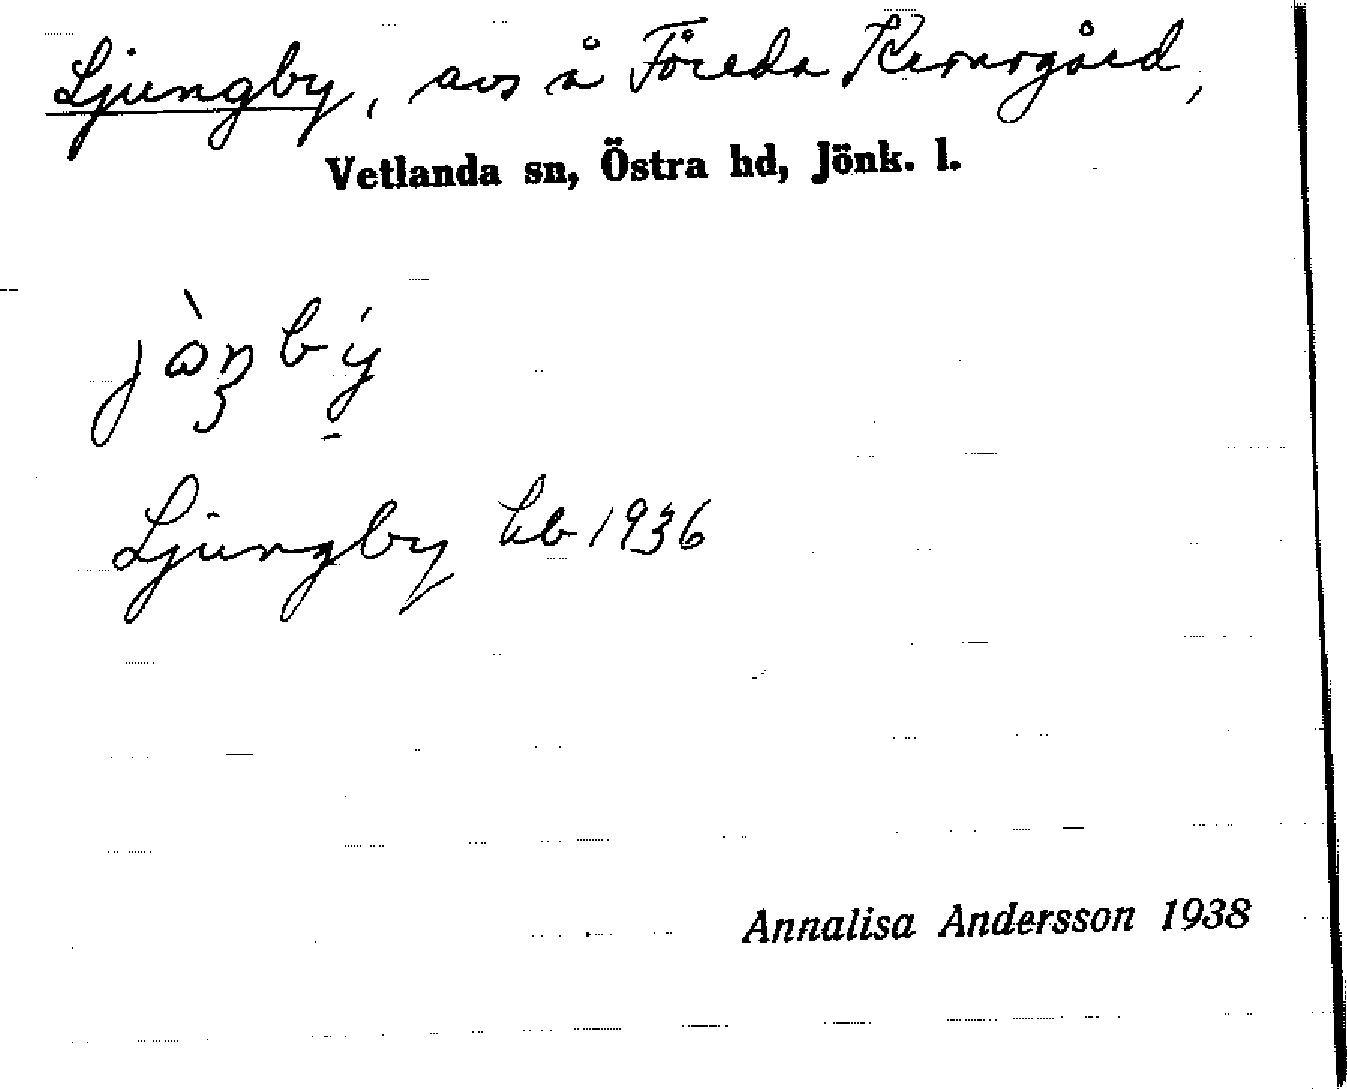 Ljungby, avs å Föreda Kernrgård,
Vetlanda sn, Östra hd, Jönk. l.
Ljungby hb 1936
Annalisa Andersson 1938